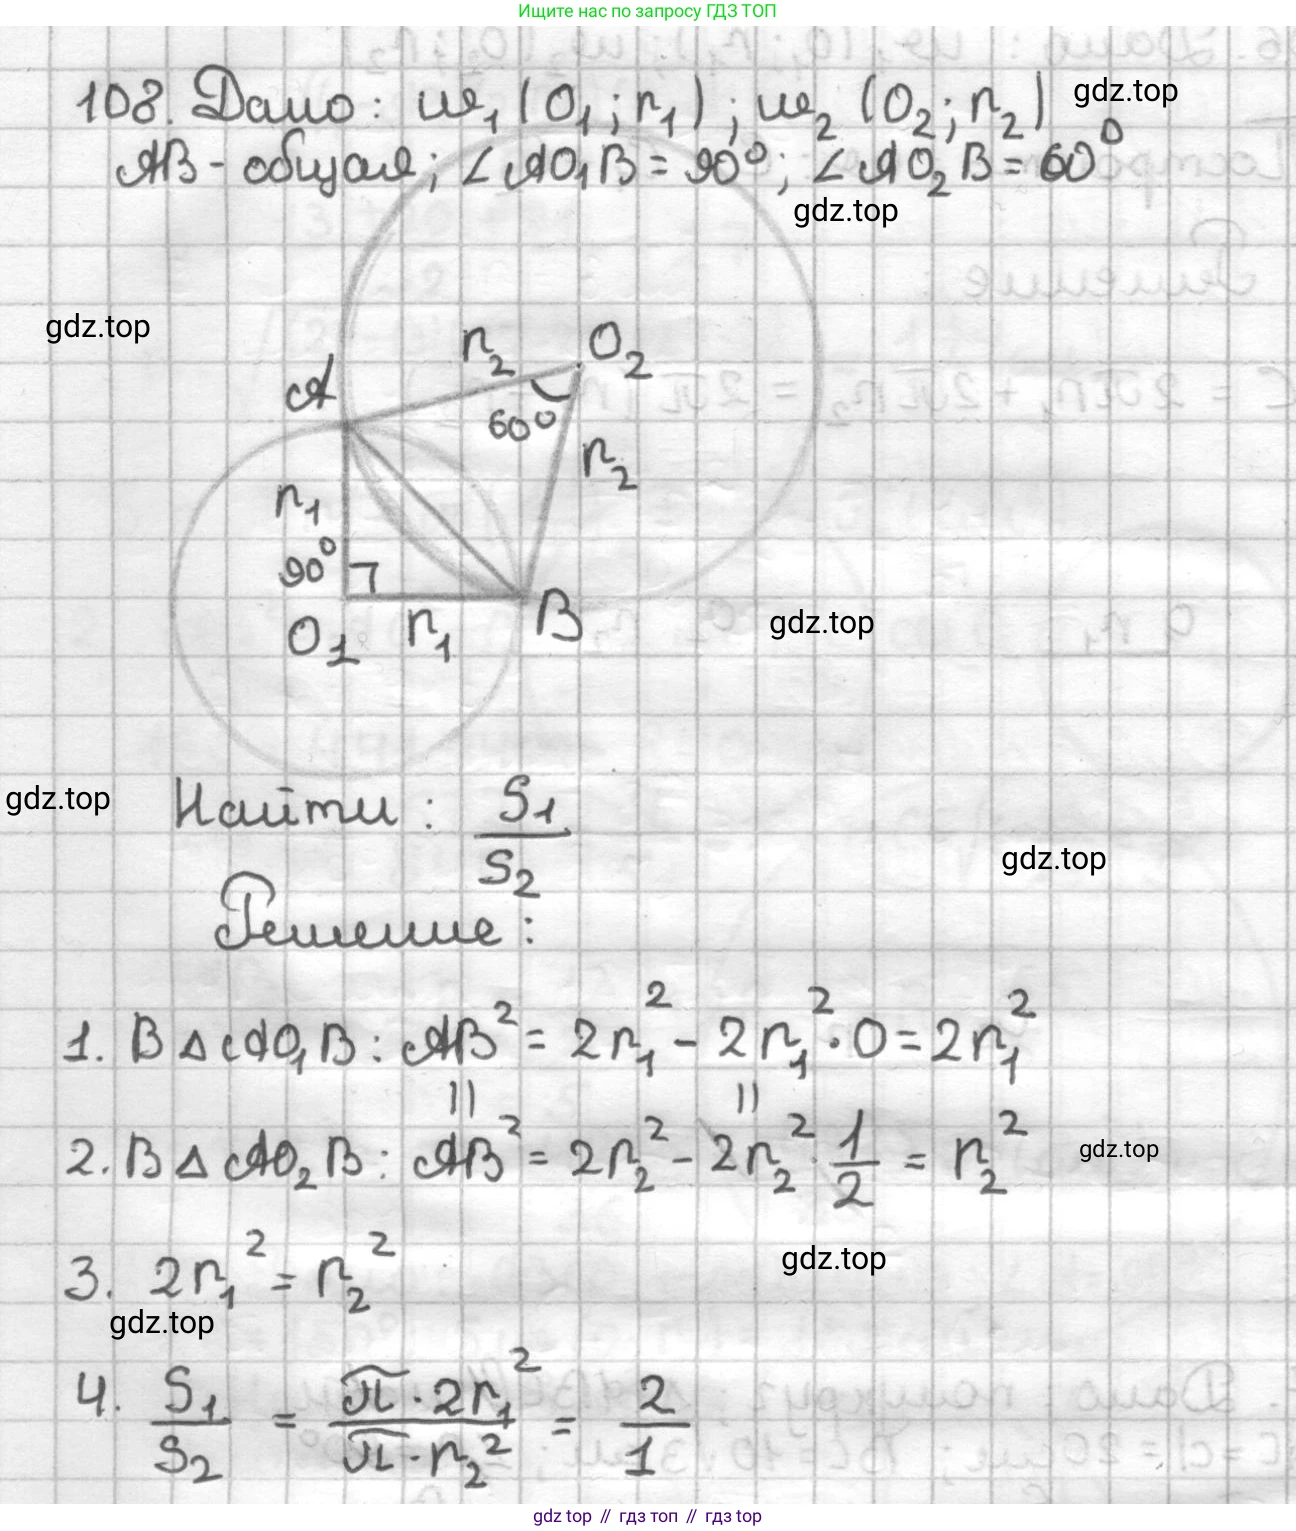 Ищите нас по запросу ГДЗ ТОП
108. Дано: ω₁ (O₁; r₁); ω₂ (O₂; r₂)
gdz.top
AB - общая; ∠AO₁B = 90°; ∠AO₂B = 60°
gdz.top
gdz.top
r₂ O₂
A
60°
r₂
r₁
90°
O₁ r₁ B
gdz.top
Найти: S₁/S₂
gdz.top
gdz.top
Решение:
1. В △AO₁B: AB² = 2r₁² - 2r₁² · 0 = 2r₁²
|| ||
2. В △AO₂B: AB² = 2r₂² - 2r₂² · 1/2 = r₂²
gdz.top
3. 2r₁² = r₂²
gdz.top
gdz.top
4. S₁/S₂ = π · 2r₁² / π · r₂² = 2/1
gdz top // гдз топ // гдз top